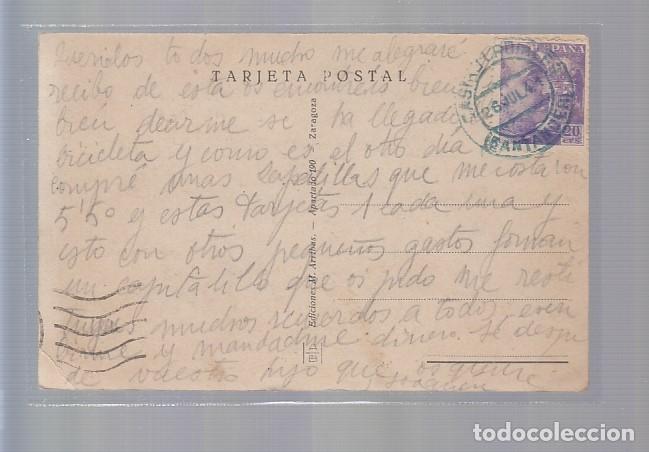 Queridos todos mucho me alegraré
TARJETA POSTAL
recibo de esta os encontreis bien
bien decirme se ha llegado
bicicleta y como es el otro día
compré unas zapatillas que me costaron
5'50 y estas tarjetas 1 cada una y
esto con otros pequeños gastos forman
un capitalito que os pido me resti
tuyais muchos recuerdos a todos
y mandadme dinero. Se despi
de vuestro hijo que os quiere
Joaquin
Ediciones M. Arribas. - Apartado 190 Zaragoza
ESPAÑA
20
CTS
26 JUL 44
(SANTANDER)
todocoleccion.net